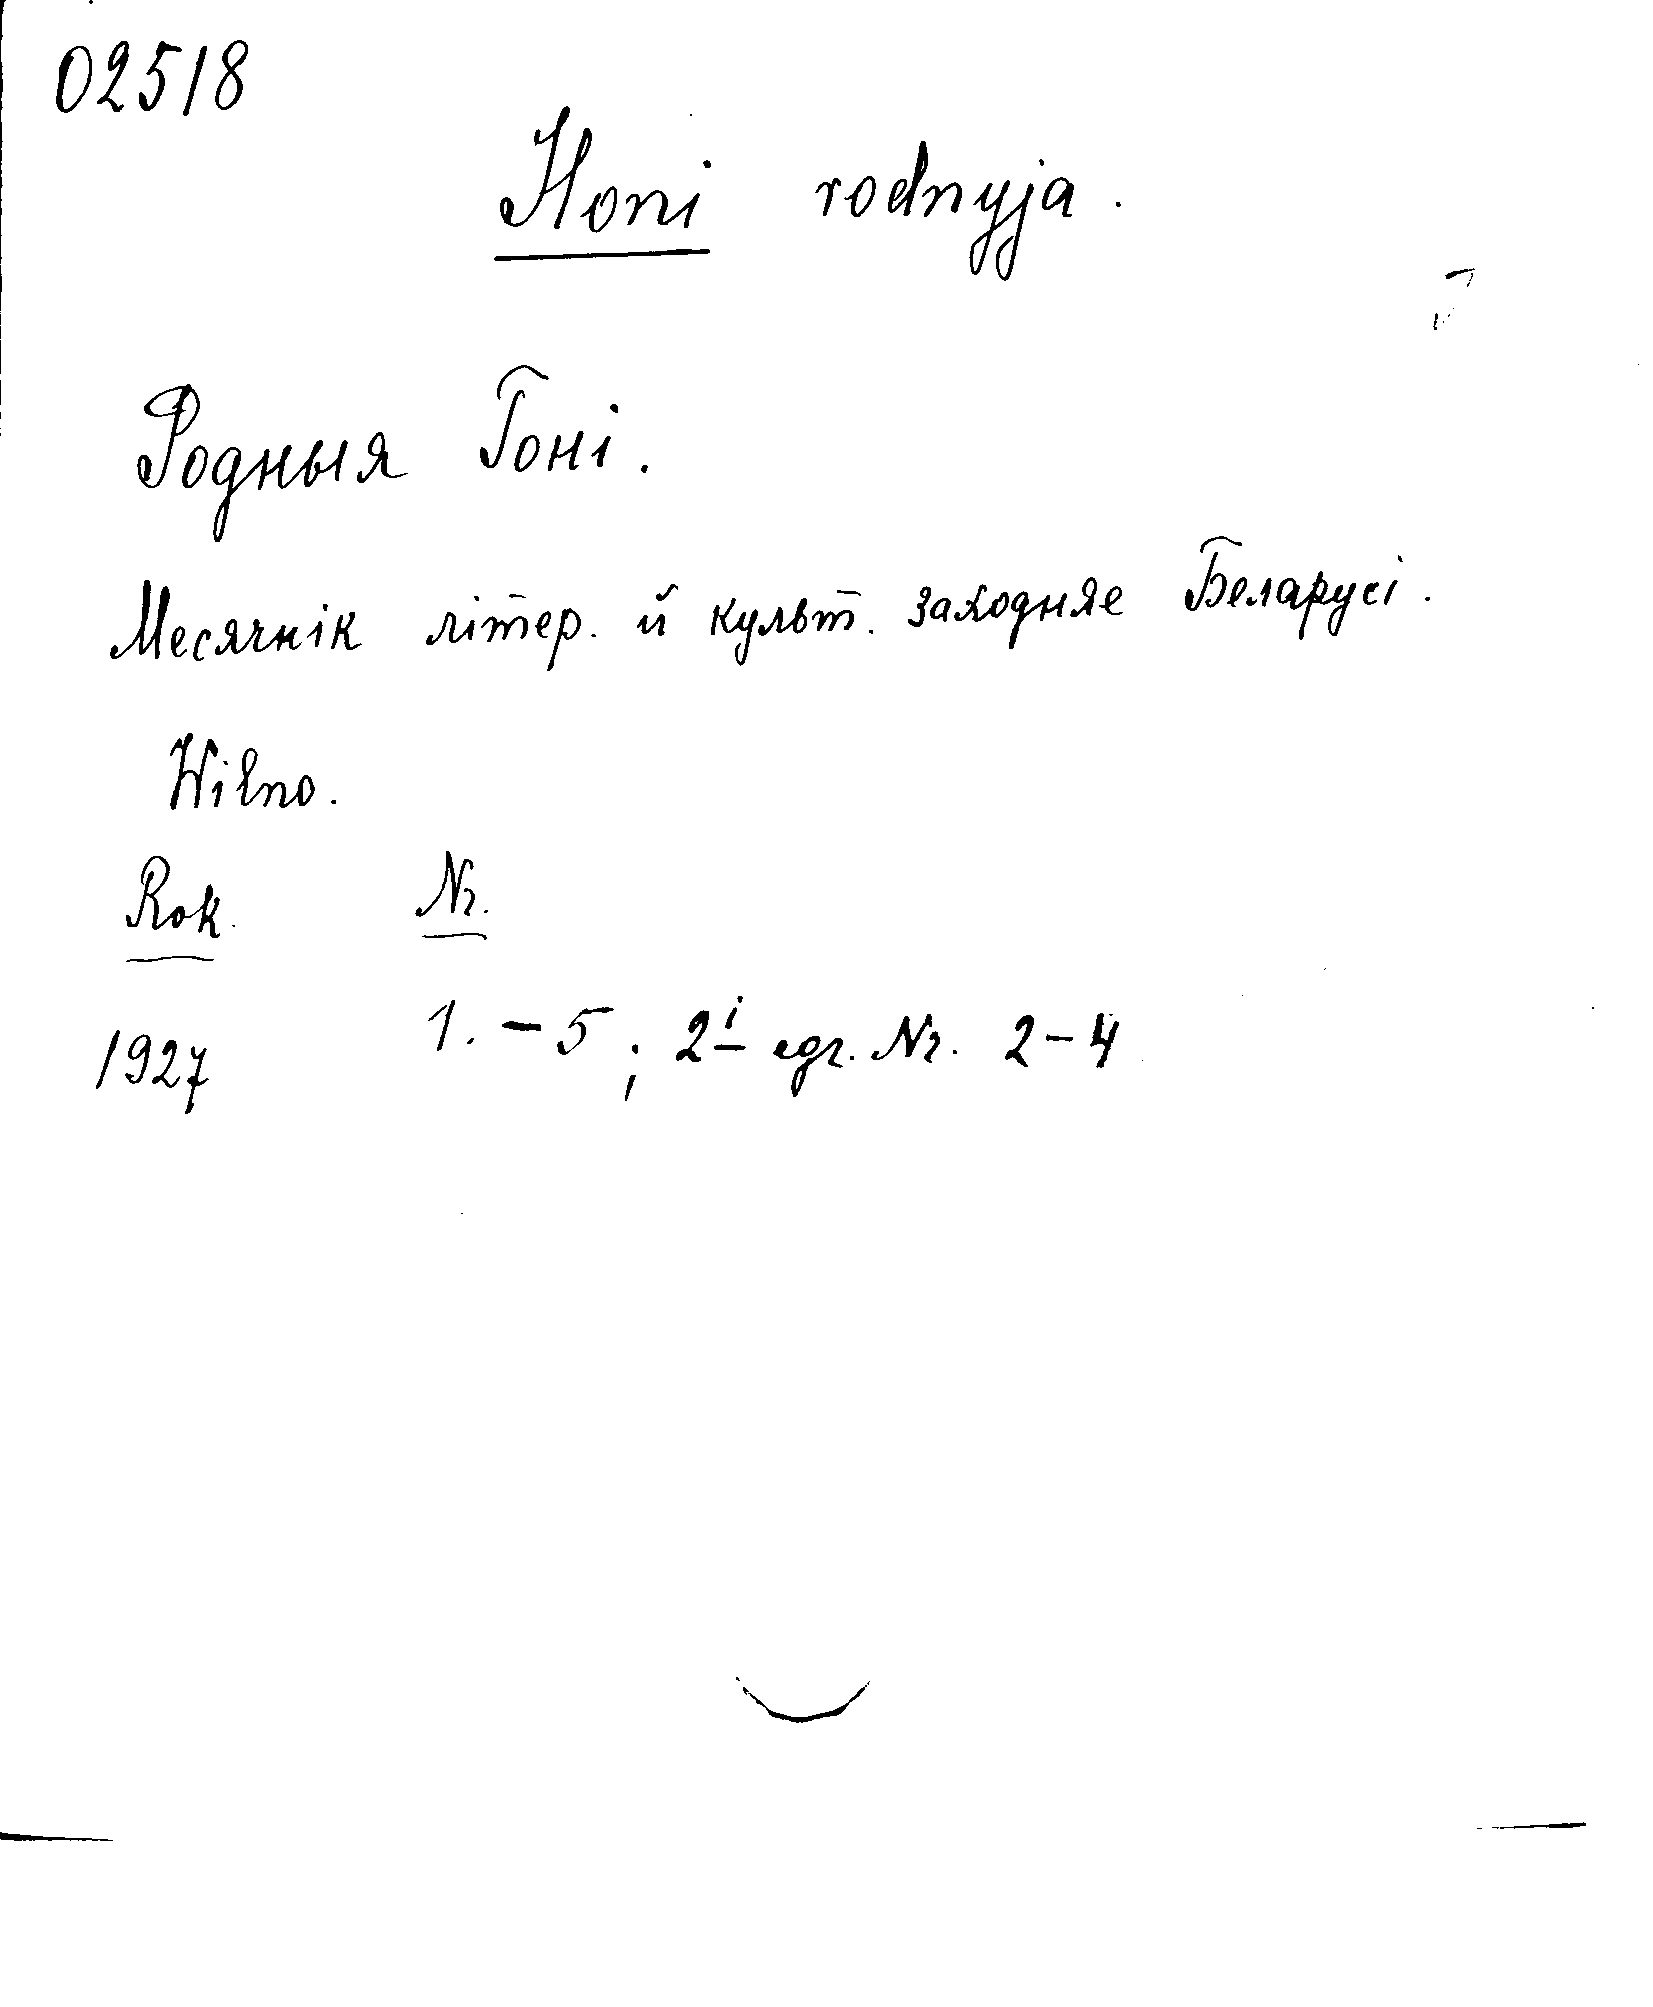 02518
Honi rodnyja.
Родныя Гоні.
Месячнік літер. й культ. заходняе Беларусі.
Wilno.
Rok. Nr.
1927 1. – 5 ; 2i egz. Nr. 2 – 4